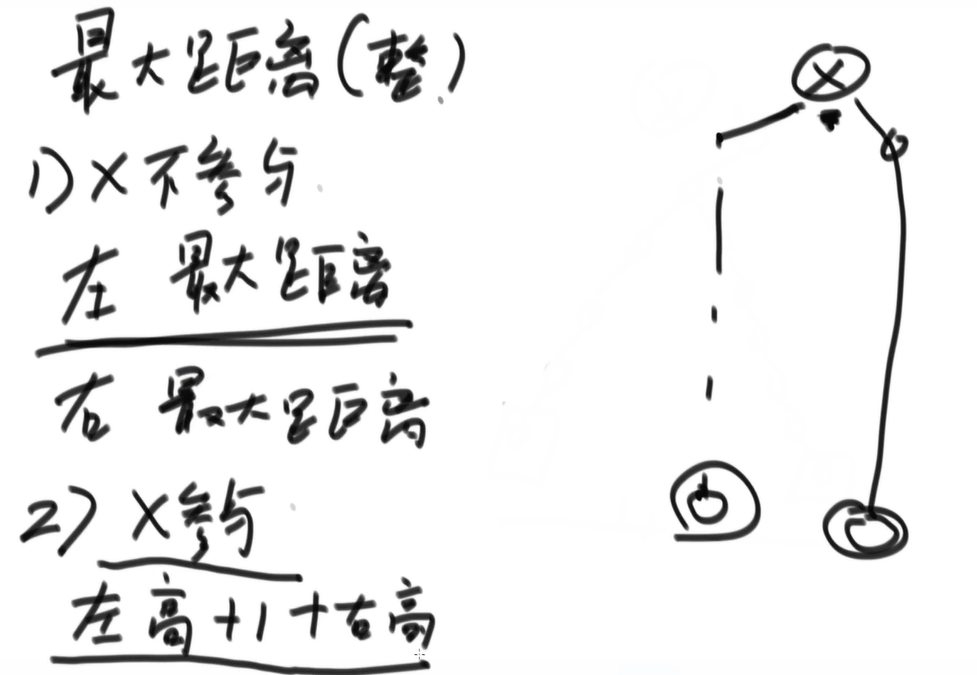 最大距离(整)
1) X 不参与
左 最大距离
右 最大距离
2) X 参与
左高 + 1 + 右高
X